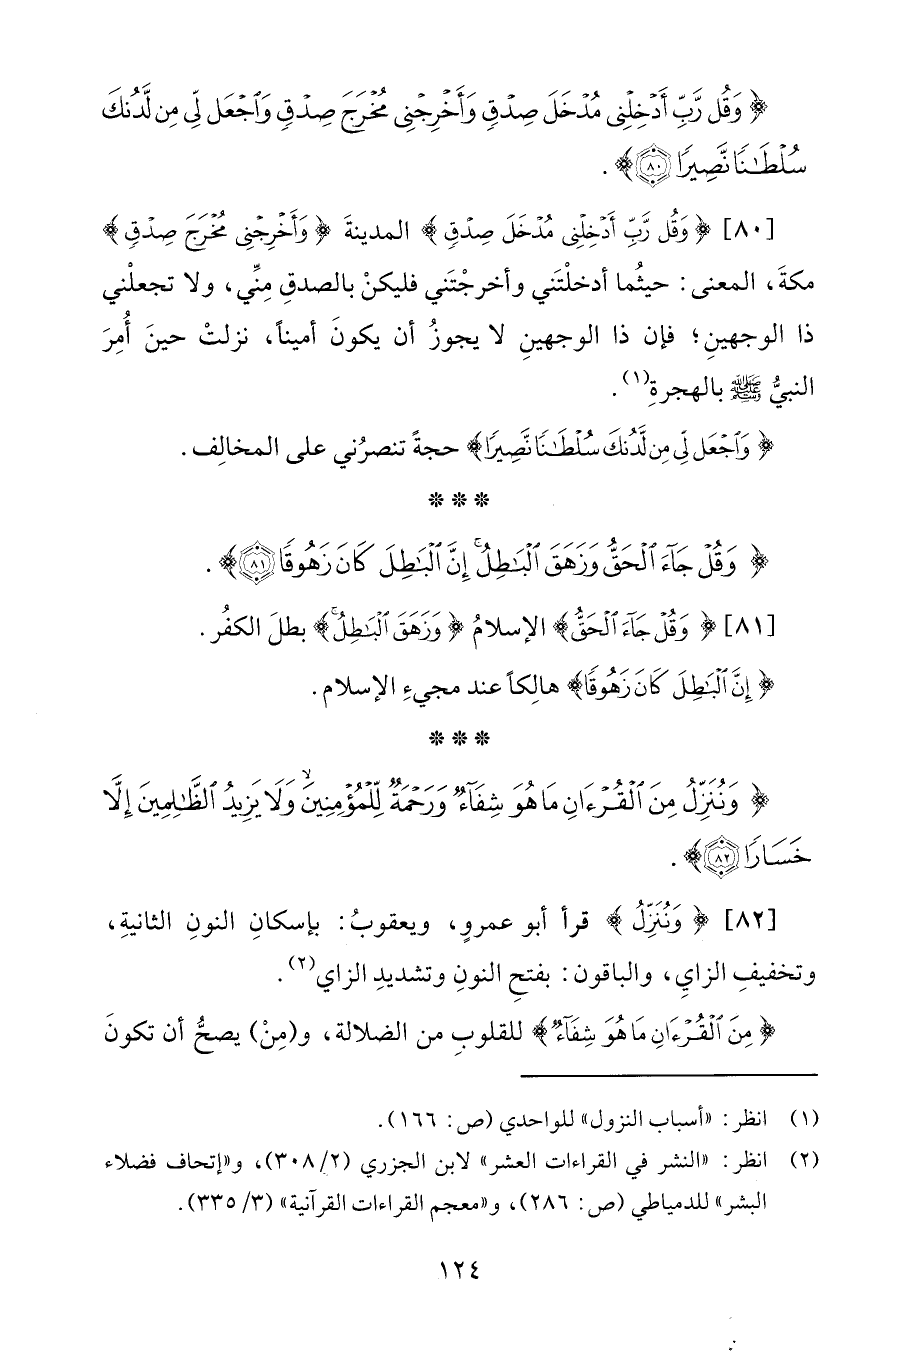 ﴿ وَقُل رَّبِّ أَدْخِلْنِى مُدْخَلَ صِدْقٍ وَأَخْرِجْنِى مُخْرَجَ صِدْقٍ وَٱجْعَل لِّى مِن لَّدُنكَ
سُلْطَـٰنًا نَّصِيرًا ۝٨٠ ﴾ .
[٨٠] ﴿ وَقُل رَّبِّ أَدْخِلْنِى مُدْخَلَ صِدْقٍ ﴾ المدينةَ ﴿ وَأَخْرِجْنِى مُخْرَجَ صِدْقٍ ﴾
مكةَ، المعنى: حيثُما أدخلْتَني وأخرجْتَني فليكنْ بالصدقِ مِنِّي، ولا تجعلْني
ذا الوجهينِ؛ فإن ذا الوجهينِ لا يجوزُ أن يكونَ أميناً، نزلتْ حينَ أُمِرَ
النبيُّ ﷺ بالهجرةِ(١).
﴿ وَٱجْعَل لِّى مِن لَّدُنكَ سُلْطَـٰنًا نَّصِيرًا﴾ حجةً تنصرُني على المخالِف.
* * *
﴿ وَقُلْ جَآءَ ٱلْحَقُّ وَزَهَقَ ٱلْبَـٰطِلُ ۚ إِنَّ ٱلْبَـٰطِلَ كَانَ زَهُوقًا ۝٨١ ﴾ .
[٨١] ﴿ وَقُلْ جَآءَ ٱلْحَقُّ﴾ الإسلامُ ﴿ وَزَهَقَ ٱلْبَـٰطِلُ ۚ﴾ بطلَ الكفُر.
﴿ إِنَّ ٱلْبَـٰطِلَ كَانَ زَهُوقًا﴾ هالِكاً عند مجيءِ الإسلام.
* * *
﴿ وَنُنَزِّلُ مِنَ ٱلْقُرْءَانِ مَا هُوَ شِفَآءٌ وَرَحْمَةٌ لِّلْمُؤْمِنِينَ ۙ وَلَا يَزِيدُ ٱلظَّـٰلِمِينَ إِلَّا
خَسَارًا ۝٨٢ ﴾ .
[٨٢] ﴿ وَنُنَزِّلُ ﴾ قرأ أبو عمروٍ، ويعقوبُ: بإسكانِ النونِ الثانيةِ،
وتخفيفِ الزايِ، والباقون: بفتحِ النونِ وتشديدِ الزاي(٢).
﴿ مِنَ ٱلْقُرْءَانِ مَا هُوَ شِفَآءٌ﴾ للقلوبِ من الضلالة، و(مِنْ) يصحُّ أن تكونَ
(١) انظر: «أسباب النزول» للواحدي (ص: ١٦٦).
(٢) انظر: «النشر في القراءات العشر» لابن الجزري (٢/ ٣٠٨)، و«إتحاف فضلاء
البشر» للدمياطي (ص: ٢٨٦)، و«معجم القراءات القرآنية» (٣/ ٣٣٥).
١٢٤